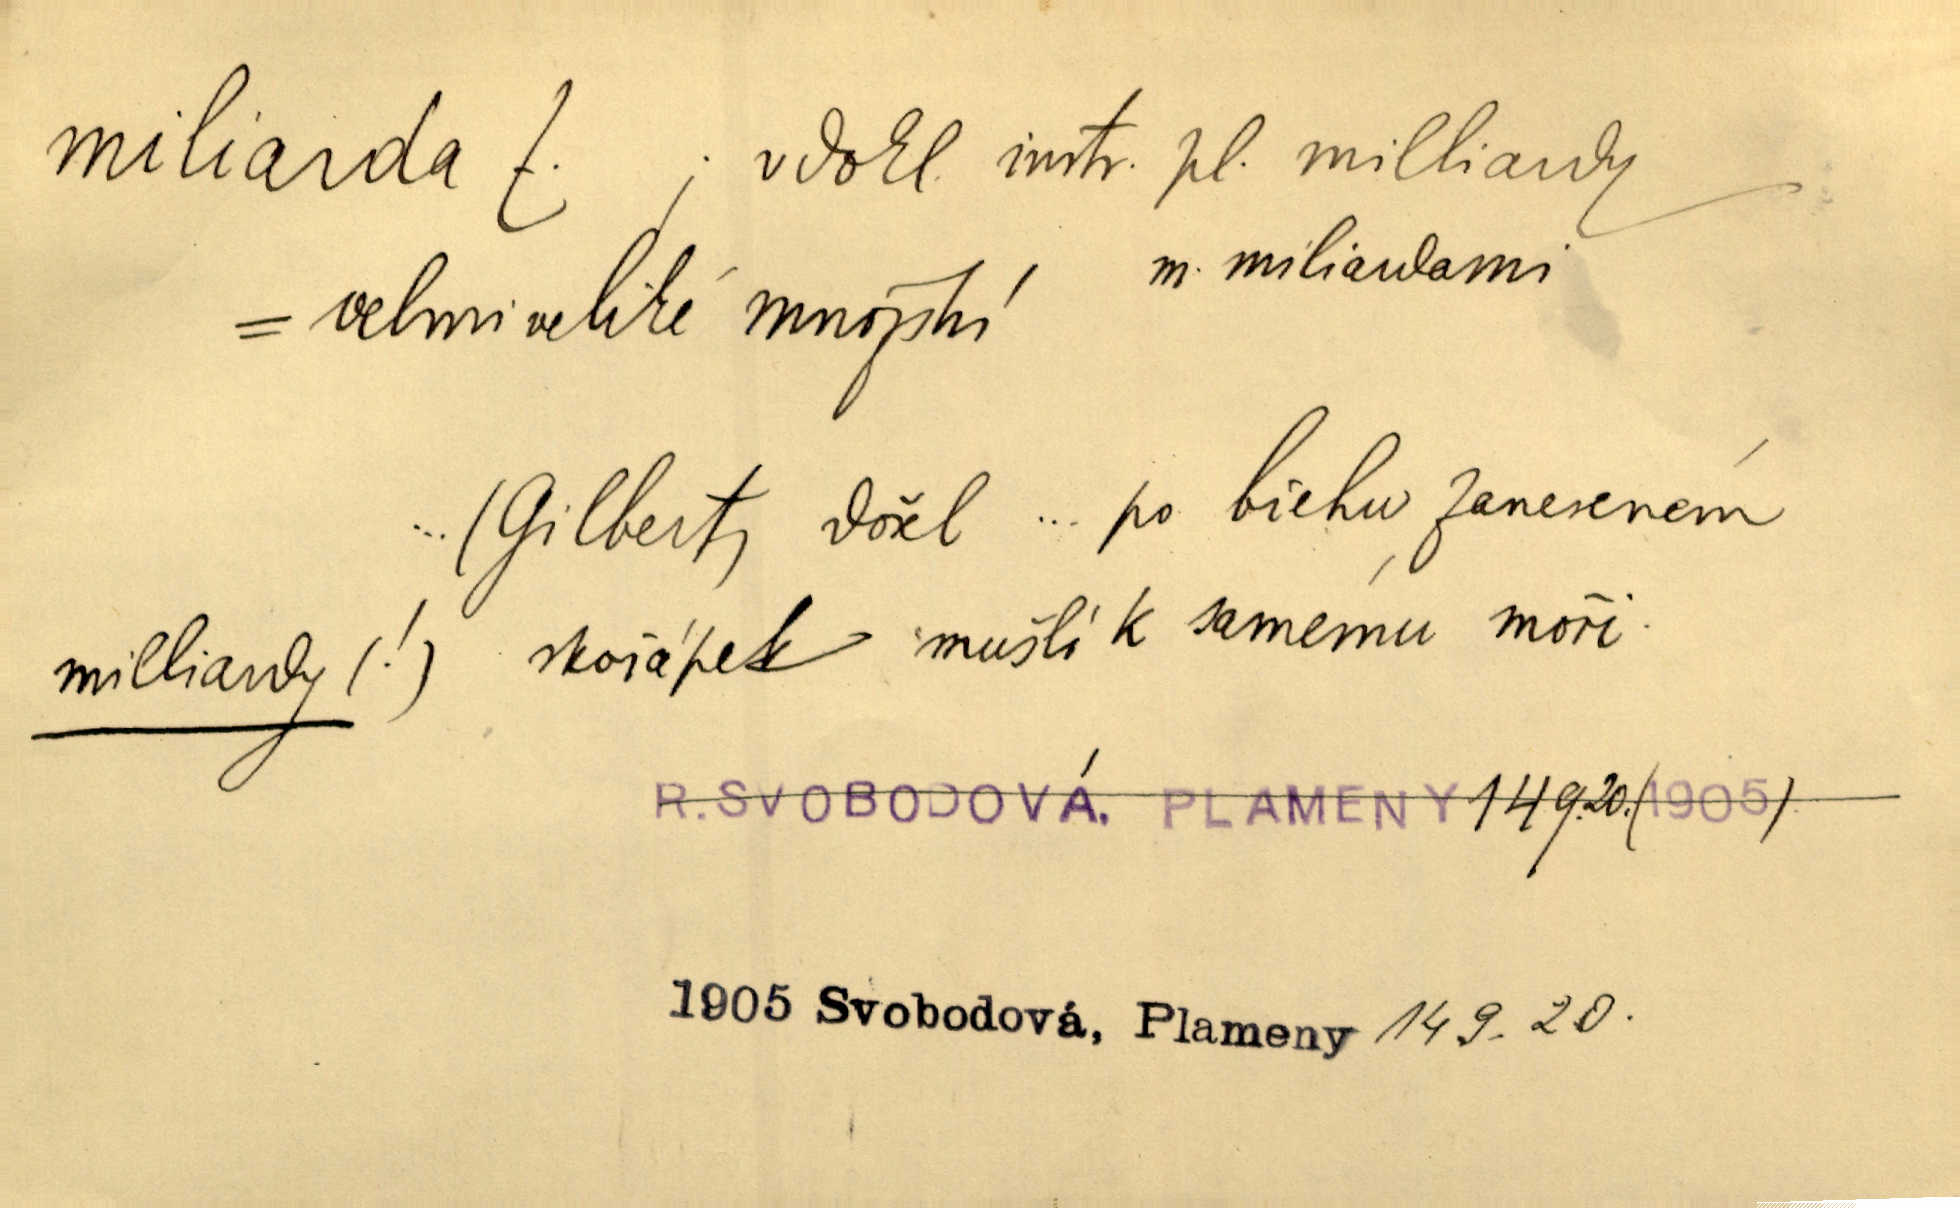 miliarda f. ; v dokl. instr. pl. milliardy
m. miliardami
= velmi veliké množství
... (Gilbert) došel ... po břehu zaneseném
milliardy (!) skořápek mušlí k samému moři.
R. SVOBODOVÁ, PLAMENY 149.20. (1905)
1905 Svobodová, Plameny 149. 20.